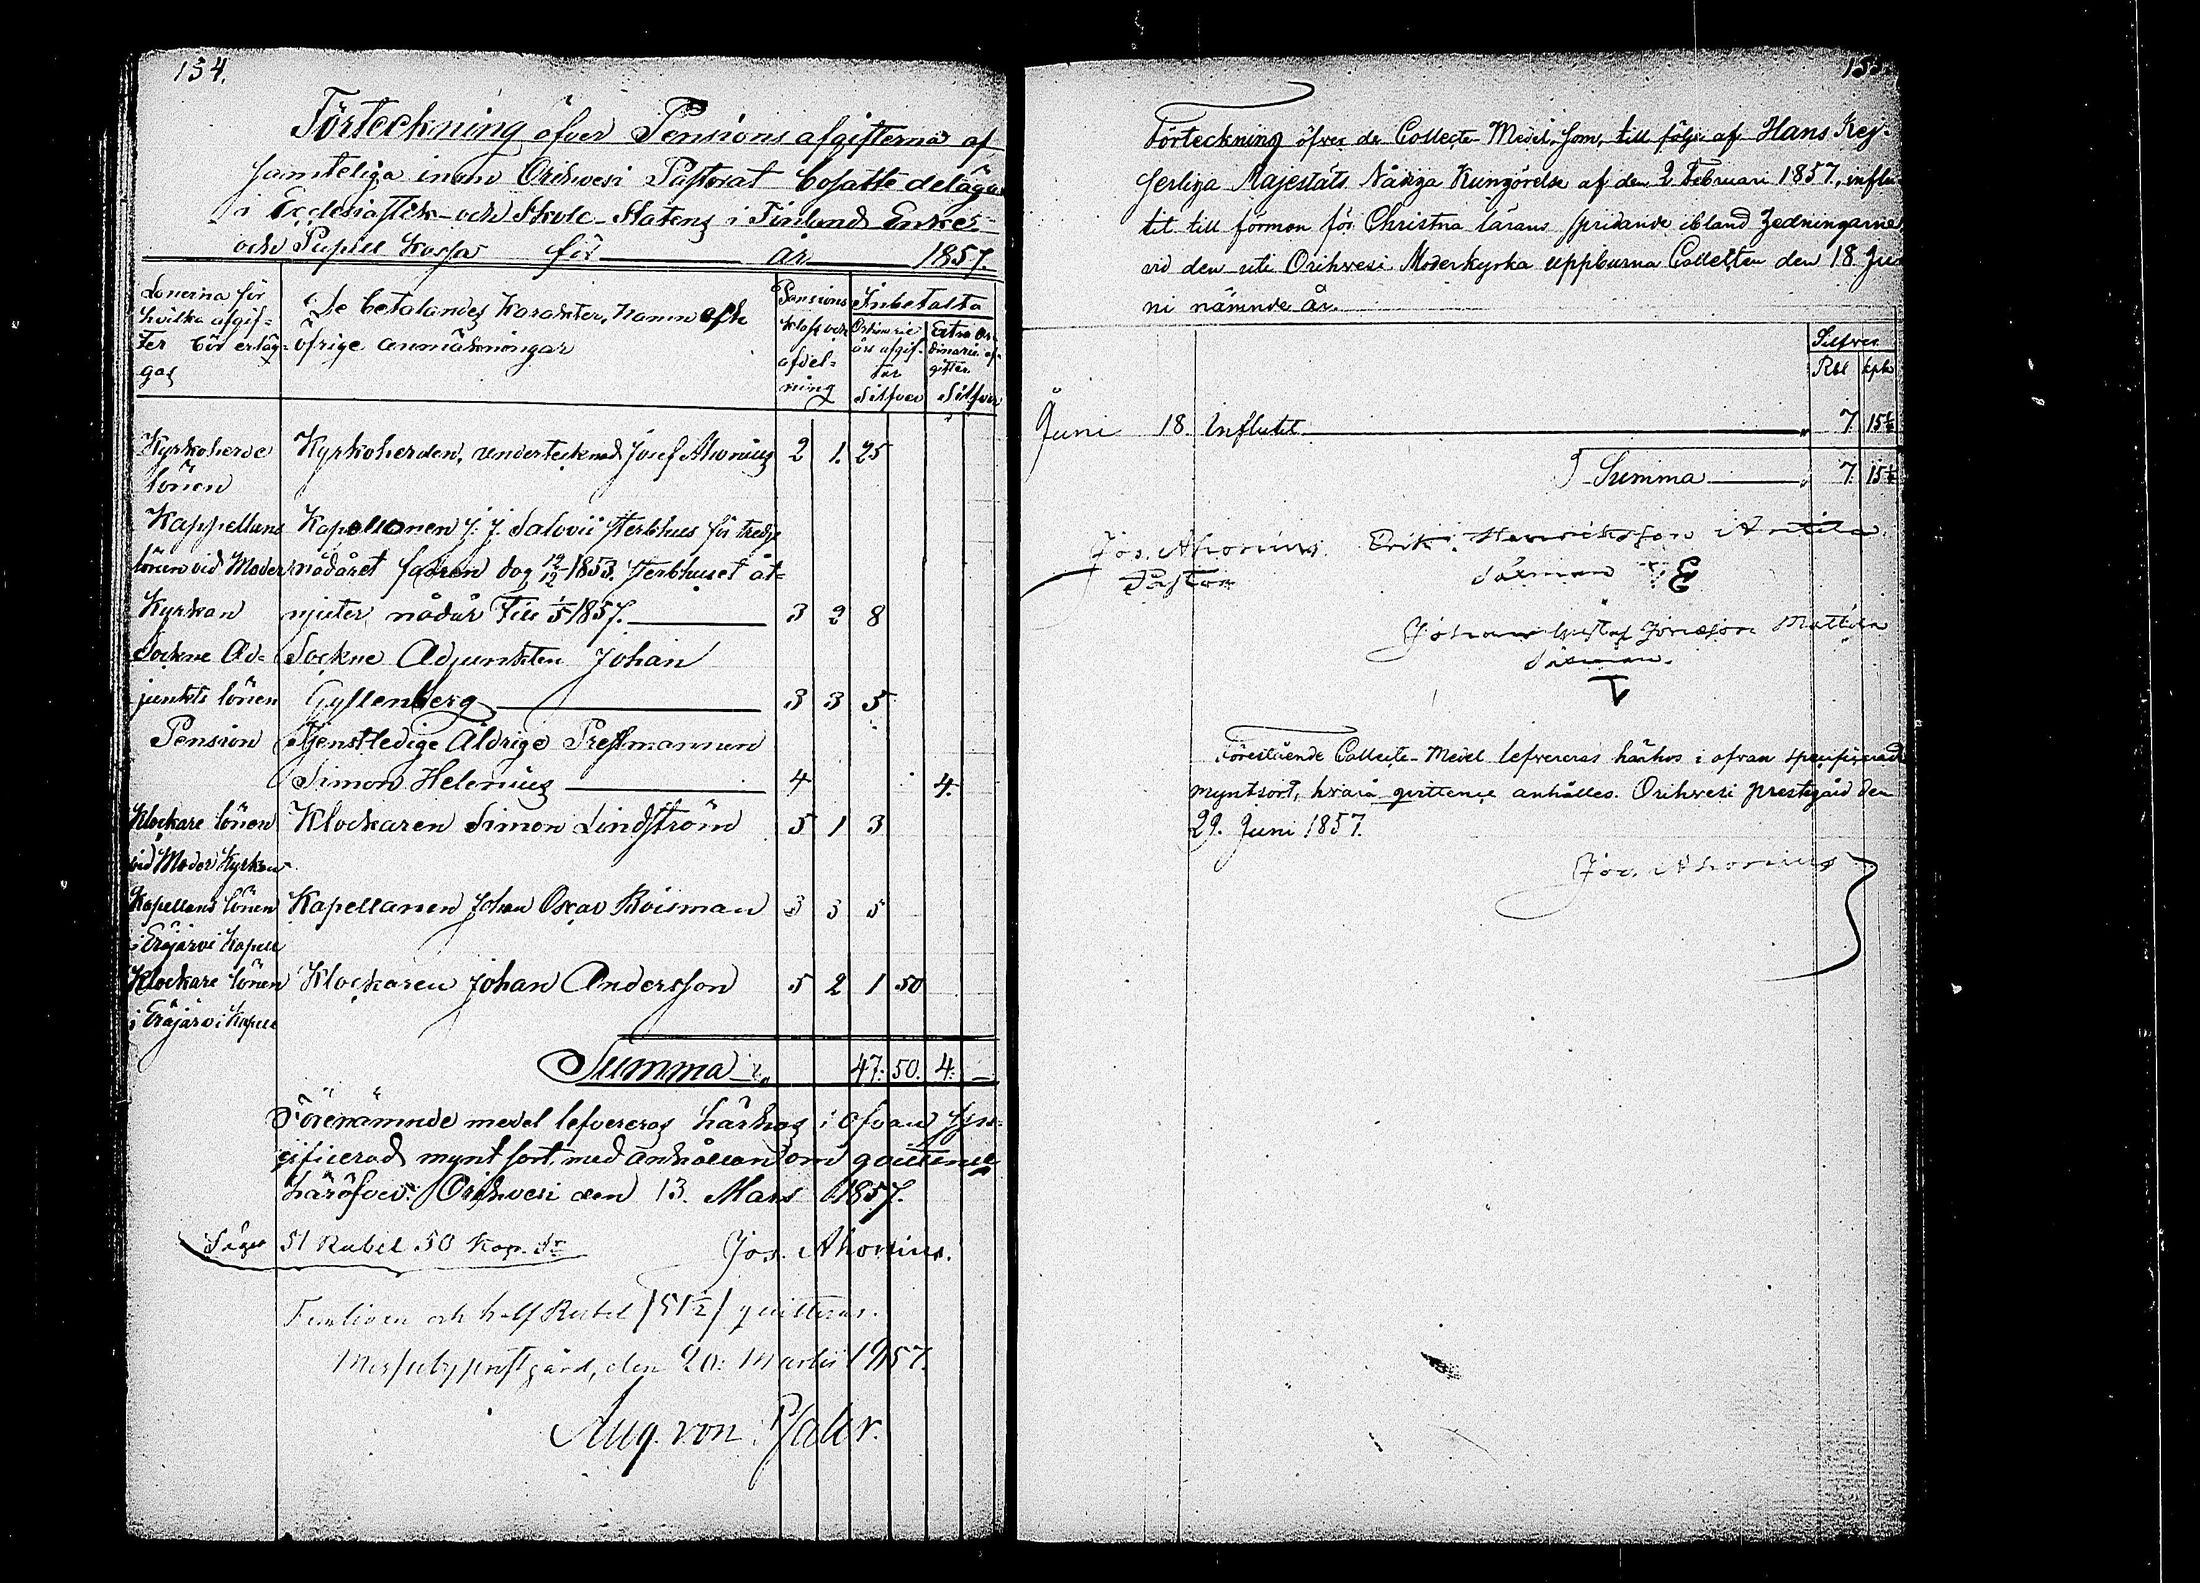 154.
Förteckning öfver Pensions afgifterna af
samteliga inom Orihvesi Pastorat bosatte delägare
i Ecclesiastik- och Skole-Statens i Finland Enke-
och Pupill Kassa för år 1857.
Lönerna för hvilka afgifter bör erläggas
De betalandes Karakter, Namn och öfrige anmärkningar
Pensions klass och afdelning
Inbetalta
Ordinarie års afgifter Silfver
Extra Ordinarie afgifter Silfver
Kyrkoherde Kyrkoherden, undertecknad Josef Ahonius 2 1. 25
lönen
Kappellans Kapellanen J. J. Salovii sterbhus för tredje
lönen vid Moder nådåret 19/12 1853. sterbhuset åt-
Kyrkan njuter nådår till 1/5 1857. 3 2 8
Sockne Ad- Sockne Adjunkten Johan
junkts lönen Gyllenberg 3 3 5
Pension Tjenstledige Åldrige Prestmannen
Simon Helenius 4 4.
Klockare lönen Klockaren Simon Lindström 5 1 3
vid Moder Kyrkan
Kapellans lönen Kapellanen Johan Oscar Roisman 3 3 5
i Eräjärvi Kapell
Klockare lönen Klockaren Johan Andersson 5 2 1 50
i Eräjärvi Kapell
Summa 47. 50. 4. —
Förenämnde medel lefvereras härhos i ofvan spe-
cificerad mynt sort, med anhållan om qvittence
häröfver. Orihvesi den 13. Mars 1857.
Säger 51 Rubel 50 Kop. Sr Jos. Ahonius.
Femtioen och half Rubel /51½/ quitteras.
Messuby prestgård, den 20: Martii 1857.
Aug. von Pfaler.
155.
Förteckning öfver de Collecte-Medel, som, till följe af Hans Kej-
serliga Majestäts Nådiga Kungörelse af den 2 Februari 1857, influ-
tit till förmon för Christna lärans spridande ibland Hedningarne,
vid den uti Orihvesi Moderkyrka uppburna Collecten den 18 Ju-
ni nämnde år.
Silfver
Rbl Kpk
Juni 18. Influtit 7. 15½
Summa 7. 15½
Jos. Ahonius. Erik Henriksson Anttila
Pastor Sexman E
Johan Gustaf Mattila
Sexman.
Förestående Collecte-Medel lefvereras härhos i ofvan specificerad
myntsort, hvarå qvittence anhålles. Orihvesi Prestgård den
29. Juni 1857.
Jos. Ahonius